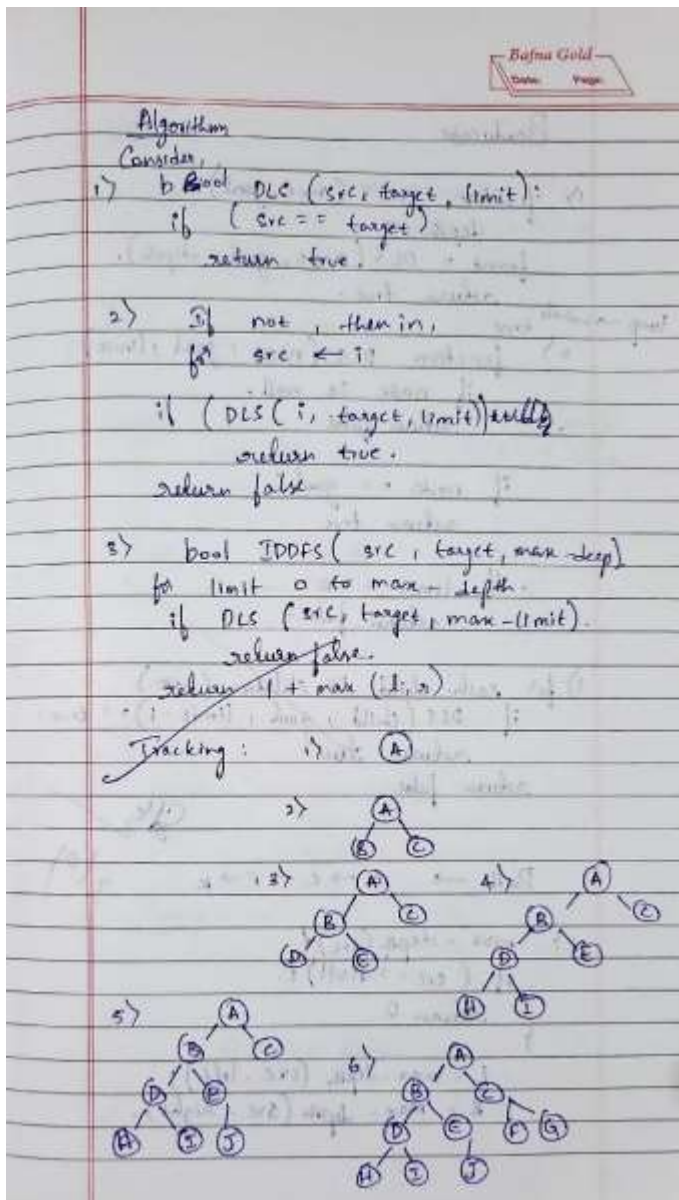 Bafna Gold
Date: Page:
Algorithm
Consider,
1) b Bool DLS (src, target, limit):
if (src == target)
return true.
2) If not, then in,
for src ← i
if (DLS (i, target, limit))
return true.
return false
3) bool IDDFS (src, target, max-deep)
for limit 0 to max-depth.
if DLS (src, target, max-limit).
return false.
return 1 + max (l, r)
Tracking: 1) A
2) A
B C
3) A
B C
D E
4) A
B C
D E
H I
5) A
B C
D E
H I J
6) A
B C
D E F G
H I J